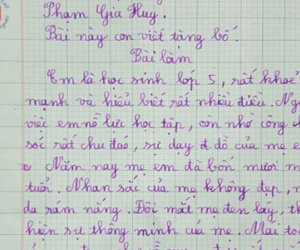 Phạm Gia Huy.
Bài này con viết tặng bố.
Bài làm
Em là học sinh lớp 5, rất khoẻ
mạnh và hiểu biết rất nhiều điều. Ng
việc em nỗ lực học tập, còn nhờ công
sóc rất chu đáo, sự dạy dỗ của mẹ e
Năm nay mẹ em đã bốn mươi m
tuổi. Nhan sắc của mẹ không đẹp, n
da rám nắng. Đôi mắt mẹ đen láy, th
hiện sự thông minh của mẹ. Mái tó